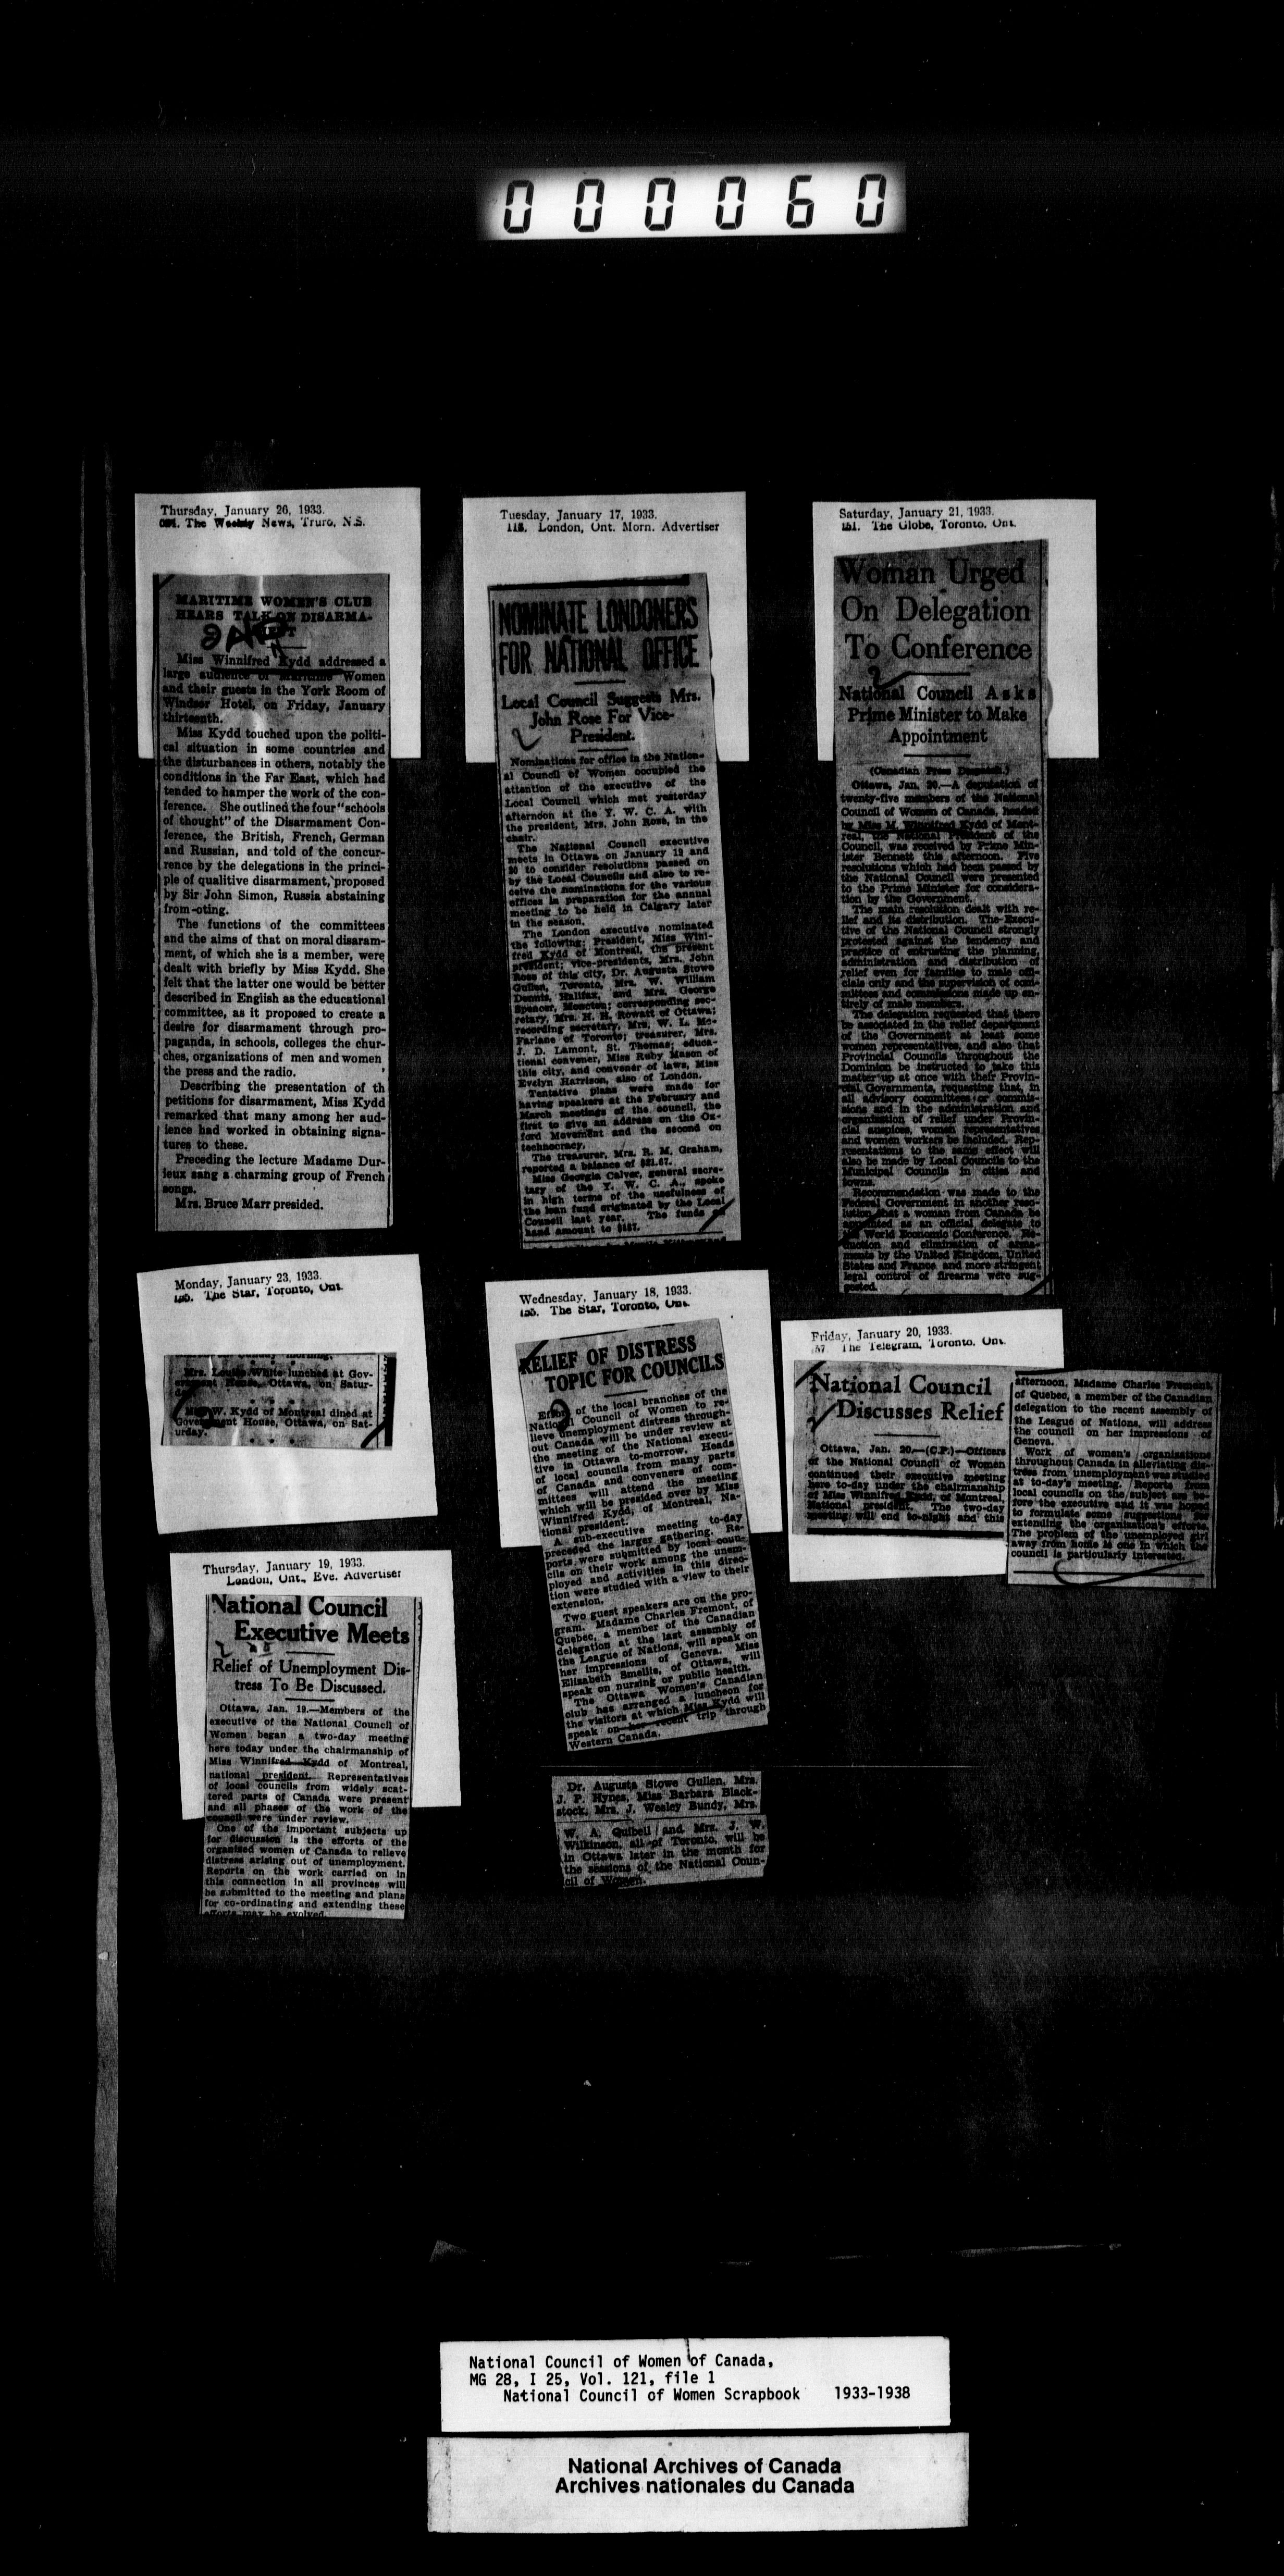 000060
Thursday, January 26, 1933.
The Weekly News, Truro, N.S.
MARITIME WOMEN'S CLUB
HEARS TALK ON DISARMA-
Miss Winnifred Kydd addressed a
large audience of Maritime Women
and their guests in the York Room of
Windsor Hotel, on Friday, January
thirteenth.
Miss Kydd touched upon the politi-
cal situation in some countries and
the disturbances in others, notably the
conditions in the Far East, which had
tended to hamper the work of the con-
ference. She outlined the four "schools
of thought" of the Disarmament Con-
ference, the British, French, German
and Russian, and told of the concur-
rence by the delegations in the princi-
ple of qualitive disarmament, proposed
by Sir John Simon, Russia abstaining
from -oting.
The functions of the committees
and the aims of that on moral disarma-
ment, of which she is a member, were
dealt with briefly by Miss Kydd. She
felt that the latter one would be better
described in English as the educational
committee, as it proposed to create a
desire for disarmament through pro-
paganda, in schools, colleges the chur-
ches, organizations of men and women
the press and the radio.
Describing the presentation of th
petitions for disarmament, Miss Kydd
remarked that many among her aud-
ience had worked in obtaining signa-
tures to these.
Preceding the lecture Madame Dur-
ieux sang a charming group of French
songs.
Mrs. Bruce Marr presided.
Tuesday, January 17, 1933.
London, Ont. Morn. Advertiser
NOMINATE LONDONERS
FOR NATIONAL OFFICE
Local Council Suggests Mrs.
John Rose For Vice-
President.
Nominations for office in the Nation-
al Council of Women occupied the
attention of the executive of the
Local Council which met yesterday
afternoon at the Y. W. C. A. with
the president, Mrs. John Rose, in the
chair.
The National Council executive
meets in Ottawa on January 19 and
20 to consider resolutions passed on
by the Local Councils and also to re-
ceive the nominations for the various
offices in preparation for the annual
meeting to be held in Calgary later
in the season.
The London executive nominated
the following: President, Miss Wini-
fred Kydd of Montreal, the present
president; vice-presidents, Mrs. John
Rose of this city, Dr. Augusta Stowe
Gullen, Toronto, Mrs. W. William
Dennis, Halifax, and Mrs. George
Spencer, Moncton; corresponding sec-
retary, Mrs. H. H. Rowatt of Ottawa;
recording secretary, Mrs. W. L. Mc-
Farlane of Toronto; treasurer, Mrs.
J. D. Lamont, St. Thomas; educa-
tional convener, Miss Ruby Mason of
this city, and convener of laws, Miss
Evelyn Harrison, also of London.
Tentative plans were made for
having speakers at the February and
March meetings of the council, the
first to give an address on the Ox-
ford Movement and the second on
technocracy.
The treasurer, Mrs. R. M. Graham,
reported a balance of $21.67.
Miss Georgia Calver, general secre-
tary of the Y. W. C. A., spoke
in high terms of the usefulness of
the loan fund originated by the Local
Council last year. The funds on
hand amount to $187.
Saturday, January 21, 1933.
151. The Globe, Toronto, Ont.
Woman Urged
On Delegation
To Conference
National Council Asks
Prime Minister to Make
Appointment
(Canadian Press Despatch.)
Ottawa, Jan. 20.—A deputation of
twenty-five members of the National
Council of Women of Canada, headed
by Miss M. Winnifred Kydd of Mont-
real, the National President of the
Council, was received by Prime Min-
ister Bennett this afternoon. Five
resolutions which had been passed by
the National Council were presented
to the Prime Minister for considera-
tion by the Government.
The main resolution dealt with re-
lief and its distribution. The Execu-
tive of the National Council strongly
protested against the tendency and
practice of entrusting the planning,
administration and distribution of
relief even for families to male offi-
cials only and the supervision of com-
mittees and commissions made up en-
tirely of male members.
The delegation requested that there
be associated in the relief department
of the Government at least some
women representatives, and also that
Provincial Councils throughout the
Dominion be instructed to take this
matter up at once with their Provin-
cial Governments, requesting that, in
all advisory committees or commis-
sions and in the administration and
organization of relief under Provin-
cial auspices, women representatives
and women workers be included. Rep-
resentations to the same effect will
also be made by Local Councils to the
Municipal Councils in cities and
towns.
Recommendation was made to the
Federal Government in another reso-
lution that a woman from Canada be
appointed as an official delegate to
World Economic Conference. Re-
duction and elimination of arma-
ments by the United Kingdom, United
States and France and more stringent
legal control of firearms were sug-
gested.
Monday, January 23, 1933.
The Star, Toronto, Ont.
Mrs. Louise White lunched at Gov-
ernment House, Ottawa, on Satur-
day.
Miss W. Kydd of Montreal dined at
Government House, Ottawa, on Sat-
urday.
Wednesday, January 18, 1933.
The Star, Toronto, Ont.
RELIEF OF DISTRESS
TOPIC FOR COUNCILS
Efforts of the local branches of the
National Council of Women to re-
lieve unemployment distress through-
out Canada will be under review at
the meeting of the National execu-
tive in Ottawa to-morrow. Heads
of local councils from many parts
of Canada and conveners of com-
mittees will attend the meeting
which will be presided over by Miss
Winnifred Kydd, of Montreal, Na-
tional president.
A sub-executive meeting to-day
preceded the larger gathering. Re-
ports were submitted by local coun-
cils on their work among the unem-
ployed and activities in this direc-
tion were studied with a view to their
extension.
Two guest speakers are on the pro-
gram. Madame Charles Fremont, of
Quebec, a member of the Canadian
delegation at the last assembly of
the League of Nations, will speak on
her impressions of Geneva. Miss
Elizabeth Smellie, of Ottawa, will
speak on nursing or public health.
The Ottawa Women's Canadian
club has arranged a luncheon for
the visitors at which Miss Kydd will
speak on her recent trip through
Western Canada.
Friday, January 20, 1933.
The Telegram, Toronto, Ont.
National Council
Discusses Relief
Ottawa, Jan. 20.—(C.P.)—Officers
of the National Council of Women
continued their executive meeting
here to-day under the chairmanship
of Miss Winnifred Kydd, of Montreal
National president. The two-day
meeting will end to-night and this
afternoon, Madame Charles Fremont,
of Quebec, a member of the Canadian
delegation to the recent assembly of
the League of Nations, will address
the council on her impressions of
Geneva.
Work of women's organizations
throughout Canada in alleviating dis-
tress from unemployment was studied
at to-day's meeting. Reports from
local councils on the subject are be-
fore the executive and it was hoped
to formulate some suggestions for
extending the organization's efforts.
The problem of the unemployed girl
away from home is one in which the
council is particularly interested.
Thursday, January 19, 1933.
London, Ont., Eve. Advertiser
National Council
Executive Meets
Relief of Unemployment Dis-
tress To Be Discussed.
Ottawa, Jan. 19.—Members of the
executive of the National Council of
Women began a two-day meeting
here today under the chairmanship of
Miss Winnifred Kydd of Montreal,
national president. Representatives
of local councils from widely scat-
tered parts of Canada were present
and all phases of the work of the
council were under review.
One of the important subjects up
for discussion is the efforts of the
organized women of Canada to relieve
distress arising out of unemployment.
Reports on the work carried on in
this connection in all provinces will
be submitted to the meeting and plans
for co-ordinating and extending these
efforts may be evolved.
Dr. Augusta Stowe Gullen, Mrs.
J. P. Hynes, Miss Barbara Black-
stock, Mrs. J. Wesley Bundy, Mrs.
W. A. Quibell and Mrs. J. W.
Wilkinson, all of Toronto, will be
in Ottawa later in the month for
the sessions of the National Coun-
cil of Women.
National Council of Women of Canada,
MG 28, I 25, Vol. 121, file 1
National Council of Women Scrapbook 1933-1938
National Archives of Canada
Archives nationales du Canada